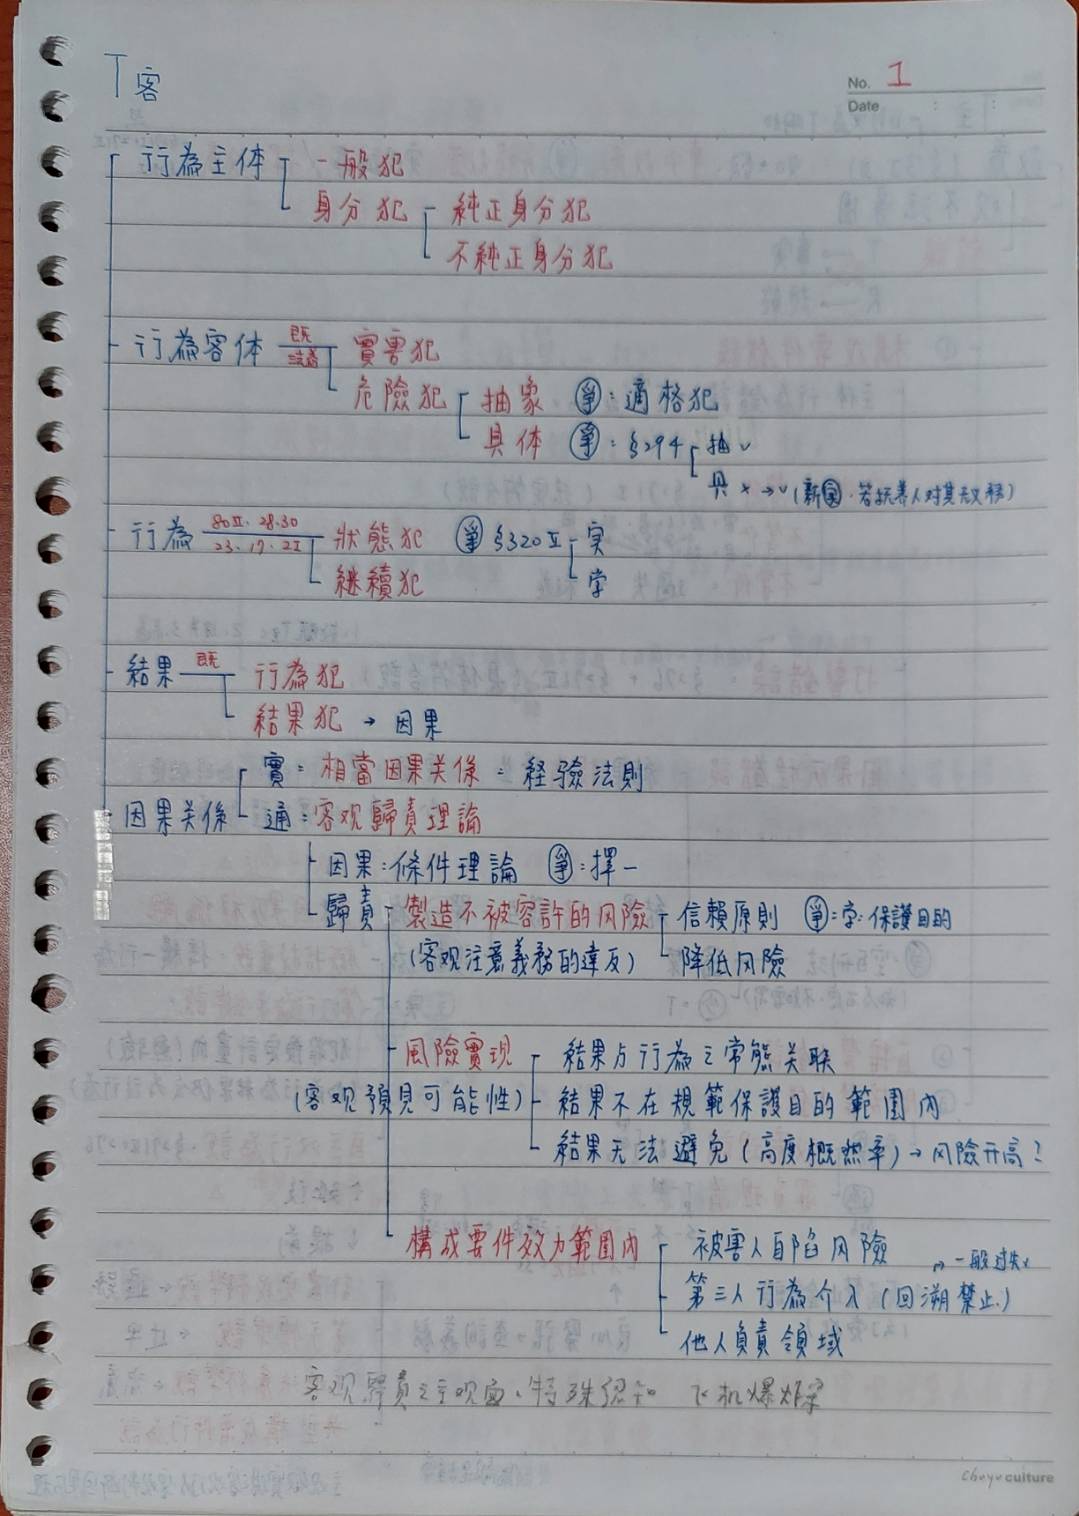 T客
No. 1
Date
行為主体 一般犯
身分犯 純正身分犯
不純正身分犯
行為客体 既 實害犯
危險犯 抽象 爭:適格犯
具体 爭:§294 抽√
具×→√(新 若扶养人对其无义務)
行為 80Ⅱ.28.30 狀態犯 爭 §320Ⅱ 実
23.17.2Ⅰ 継續犯 学
結果 既 行為犯
結果犯 → 因果
實:相當因果关係:経驗法則
因果关係 通:客观歸責理論
因果:條件理論 爭:擇一
歸責 製造不被容許的风險 信賴原則 爭:学:保護目的
(客观注意義務的違反) 降低风險
風險實現 結果与行為之常態关联
(客观預見可能性) 結果不在規範保護目的範圍內
結果无法避免(高度概然率)→风險升高?
構成要件效力範圍內 被害人自陷风險
→一般过失×
第三人行為介入(回溯禁止)
他人負責領域
客观歸責之主观面、特殊認知 飞机爆炸案
chuyu culture